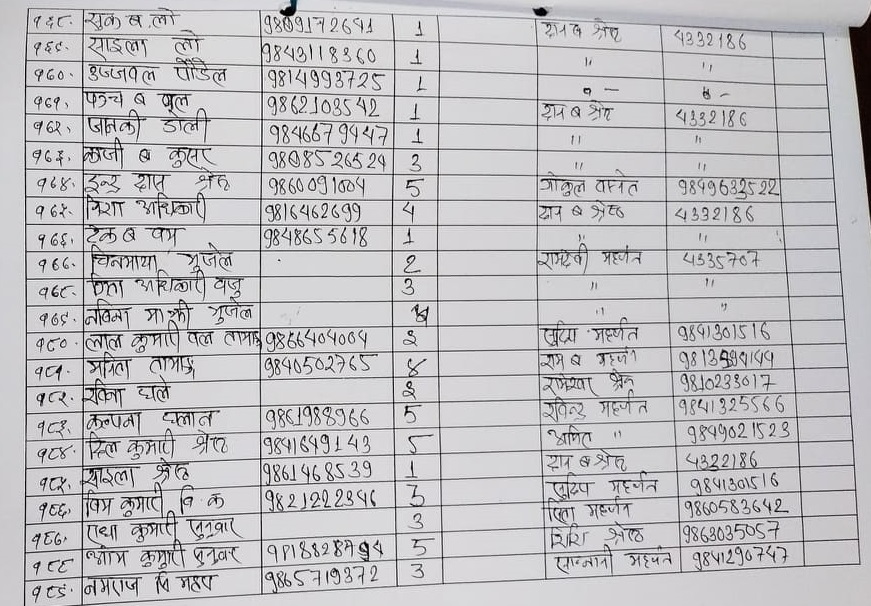 १६८. सुक ब लो 9809172641 1 राम ब श्रेष्ठ 4332186
१६९. साइला लो 9843118360 1 " "
१७०. उज्जवल पौडेल 9814993725 1 " - " -
१७१. पञ्च ब वूल 9862103542 1 राम ब श्रेष्ठ 4332186
१७२. जानकी डोली 9846679447 1 " "
१७३. काजी ब कुसर 9808526524 3 " "
१७४. इन्द्र दास श्रेष्ठ 9860091004 5 गोकुल वस्नेत 9849633522
१७५. अधिकारी 9816462699 4 राम ब श्रेष्ठ 4332186
१७६. टेक ब 9848655618 1 " "
१७७. चिनमाया भुजेल 2 रामदेवी महर्जन 4335707
१७८. अधिकारी 3 " "
१७९. नविना माझी भुजेल " "
१८०. लाल कुमारी वल तामाङ 9866404004 ३ सुदिप महर्जन 9841301516
१८१. तामाङ 9840502765 ४ राम ब महर्जन
१८२. घले ३ श्रेष्ठ 9810233017
१८३. कल्पना घलान 9861988966 5 रविन्द्र महर्जन 9841325566
१८४. दिल कुमारी श्रेष्ठ 9841649143 5 अमित " 9849021523
१८५. साइला श्रेष्ठ 9861468539 1 राम ब श्रेष्ठ 4332186
१८६. विम कुमारी वि.क 9821222346 3 सुदिप महर्जन 9841301516
१८७. राधा कुमारी सुनुवार 3 महर्जन 9860583642
१८८ ओम कुमारी सुनुवार 5 शिशि श्रेष्ठ 9863035057
१८९. नमराज 9865719372 3 महर्जन 9841290747